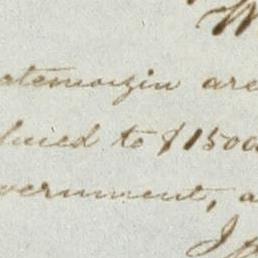 W
atemozin are
duced to $1500
vernment, a